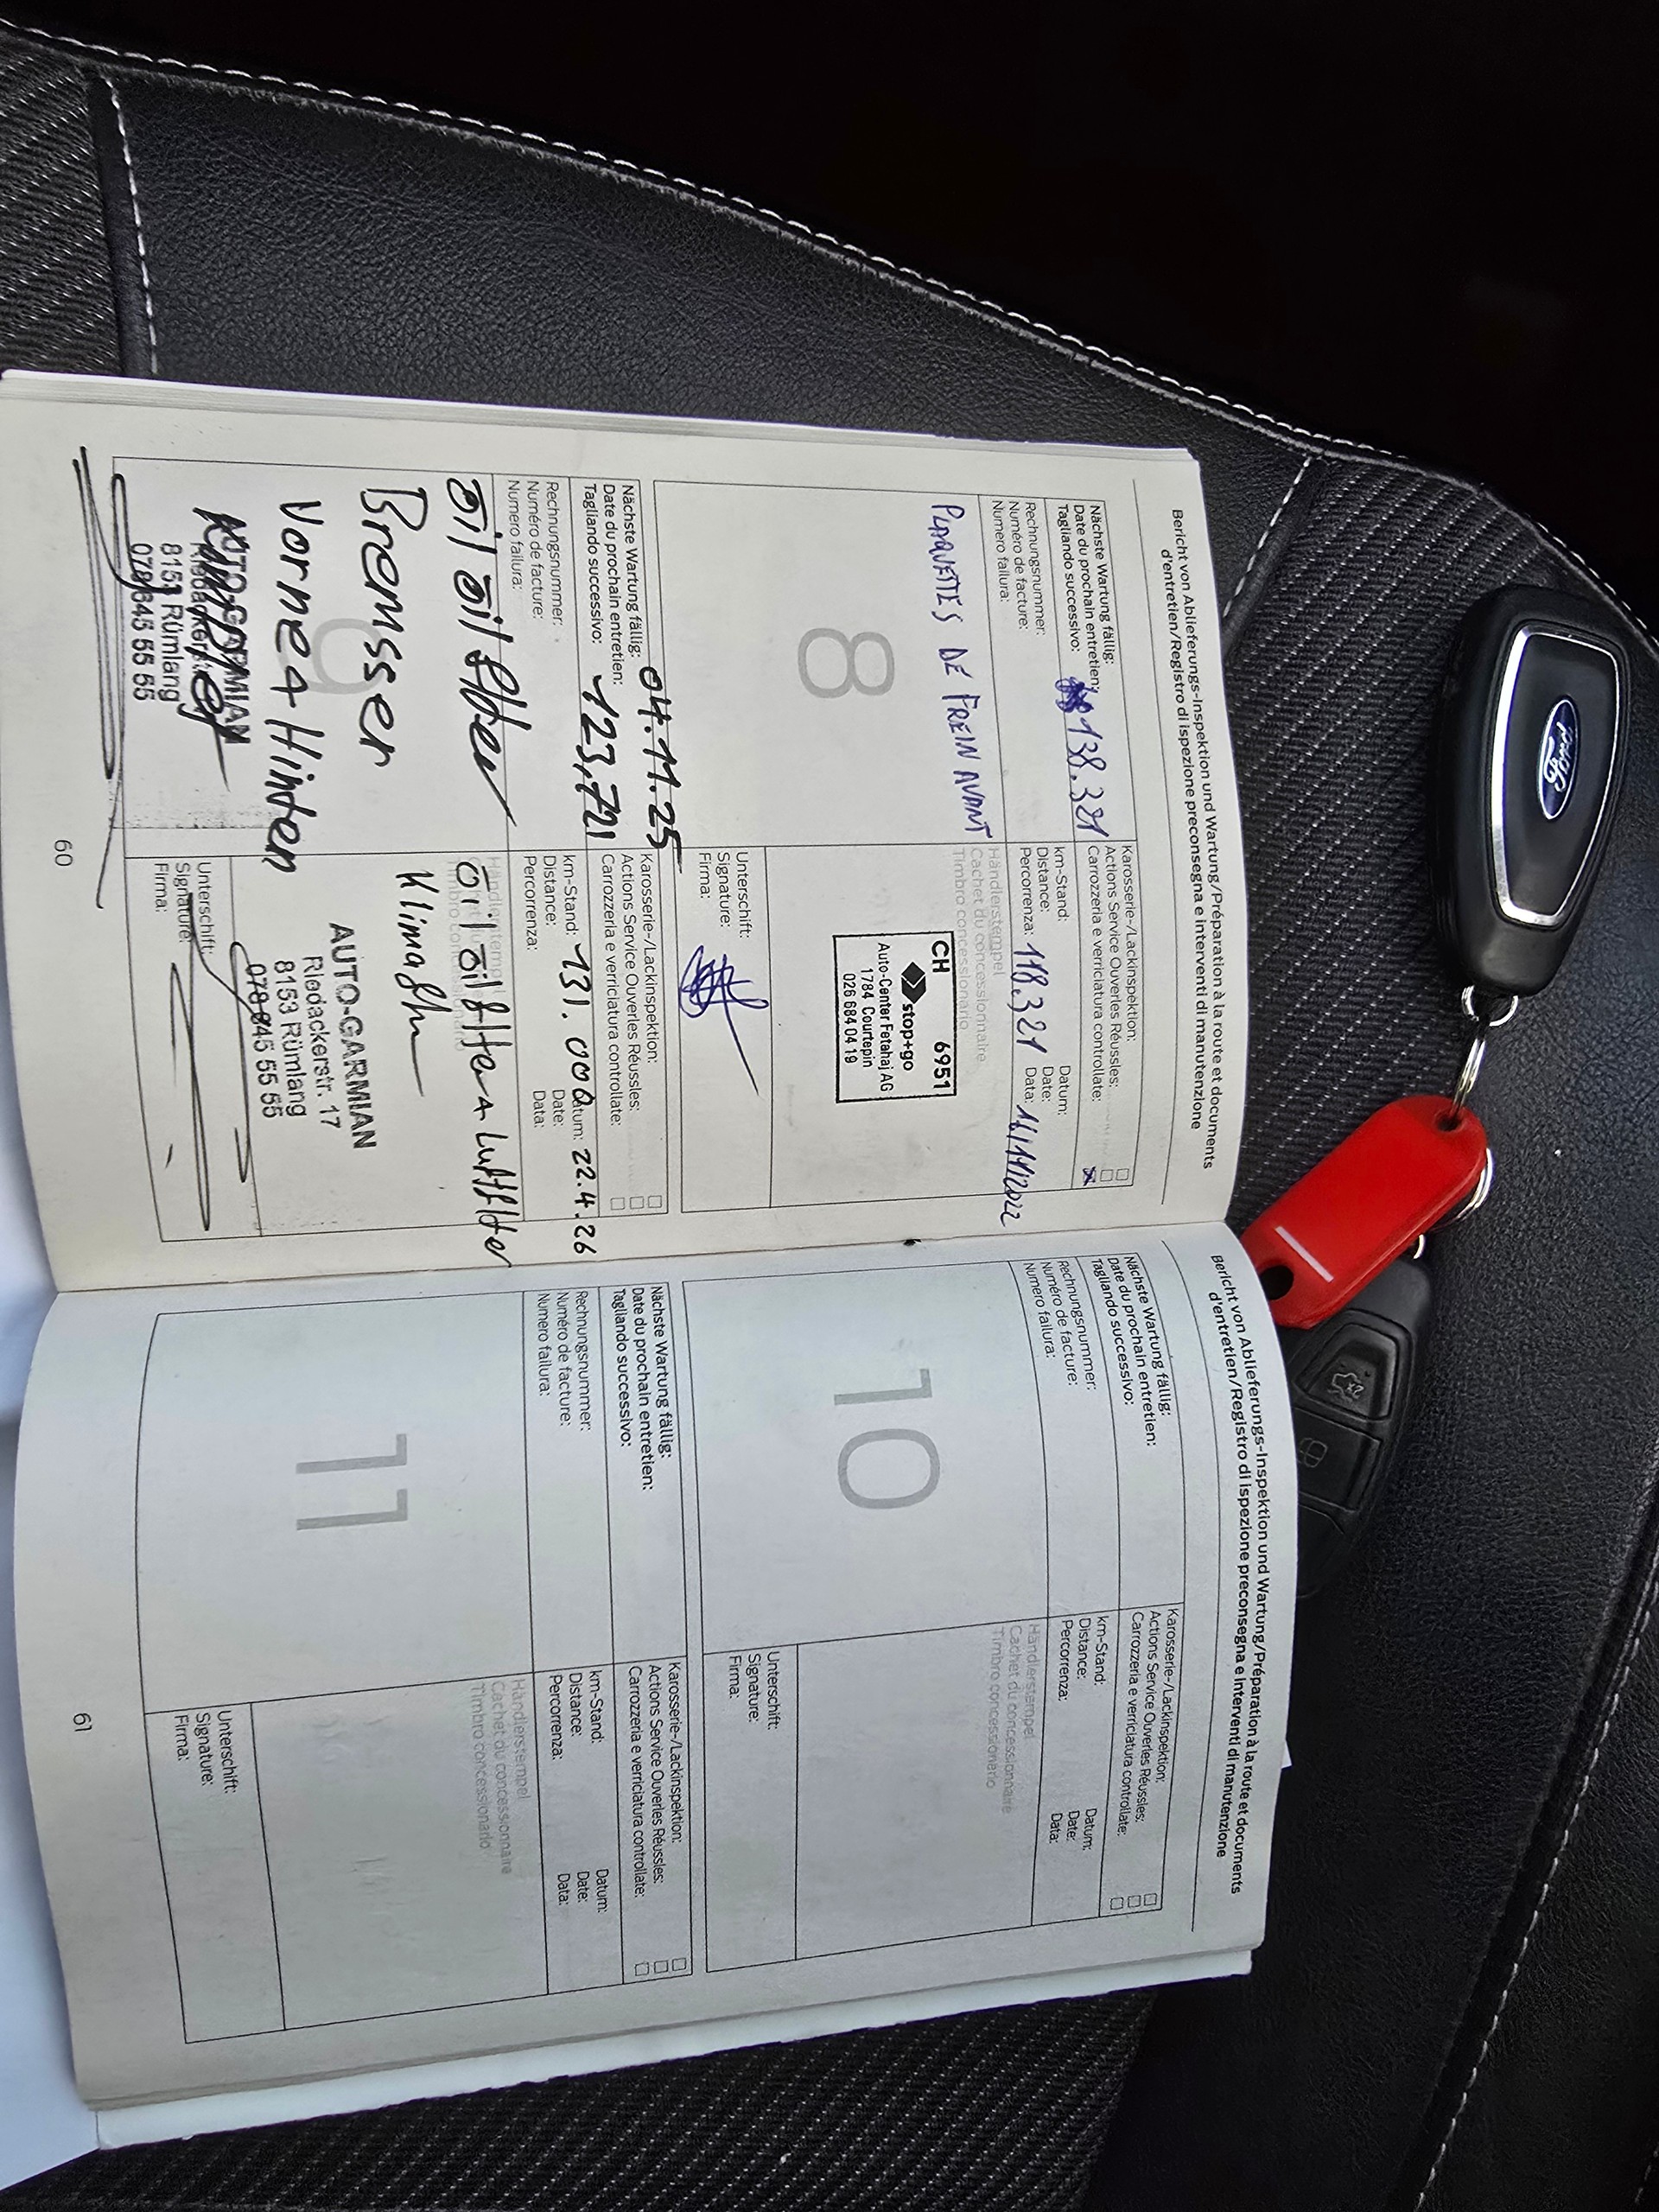 Bericht von Ablieferungs-Inspektion und Wartung/Préparation à la route et documents
d'entretien/Registro di ispezione preconsegna e interventi di manutenzione
Nächste Wartung fällig:
Date du prochain entretien:
Tagliando successivo: 138.321
Karosserie-/Lackinspektion:
Actions Service Ouverles Réussles:
Carrozzeria e verriciatura controllate:
Rechnungsnummer:
Numéro de facture:
Numero failura:
km-Stand:
Distance:
Percorrenza: 118.321
Datum:
Date:
Data: 16/11/2022
PLAQUETTES DE FREIN AVANT
8
Händlerstempel
Cachet du concessionnaire
Timbro concessionario
CH 6951
stop+go
Auto-Center Fetahaj AG
1784 Courtepin
026 684 04 19
Unterschrift:
Signature:
Firma:
04.11.25
Nächste Wartung fällig:
Date du prochain entretien:
Tagliando successivo: 123,721
Karosserie-/Lackinspektion:
Actions Service Ouverles Réussles:
Carrozzeria e verriciatura controllate:
Rechnungsnummer:
Numéro de facture:
Numero failura:
km-Stand: 131.000
Distance:
Percorrenza:
Datum: 22.4.26
Date:
Data:
öil öilfilter
Bremsser
Vorne + Hinten
9
AUTO-GARMIAN
8153 Rümlang
078 845 55 55
Händlerstempel
Cachet du concessionnaire
Timbro concessionario
öil öilfilter + Luftfilter
AUTO-GARMIAN
Riedackerstr. 17
8153 Rümlang
078 845 55 55
Unterschrift:
Signature:
Firma:
60
Bericht von Ablieferungs-Inspektion und Wartung/Préparation à la route et documents
d'entretien/Registro di ispezione preconsegna e interventi di manutenzione
Nächste Wartung fällig:
Date du prochain entretien:
Tagliando successivo:
Karosserie-/Lackinspektion:
Actions Service Ouverles Réussles:
Carrozzeria e verriciatura controllate:
Rechnungsnummer:
Numéro de facture:
Numero failura:
km-Stand:
Distance:
Percorrenza:
Datum:
Date:
Data:
10
Händlerstempel
Cachet du concessionnaire
Timbro concessionario
Unterschrift:
Signature:
Firma:
Nächste Wartung fällig:
Date du prochain entretien:
Tagliando successivo:
Karosserie-/Lackinspektion:
Actions Service Ouverles Réussles:
Carrozzeria e verriciatura controllate:
Rechnungsnummer:
Numéro de facture:
Numero failura:
km-Stand:
Distance:
Percorrenza:
Datum:
Date:
Data:
11
Händlerstempel
Cachet du concessionnaire
Timbro concessionario
Unterschrift:
Signature:
Firma:
61
Ford